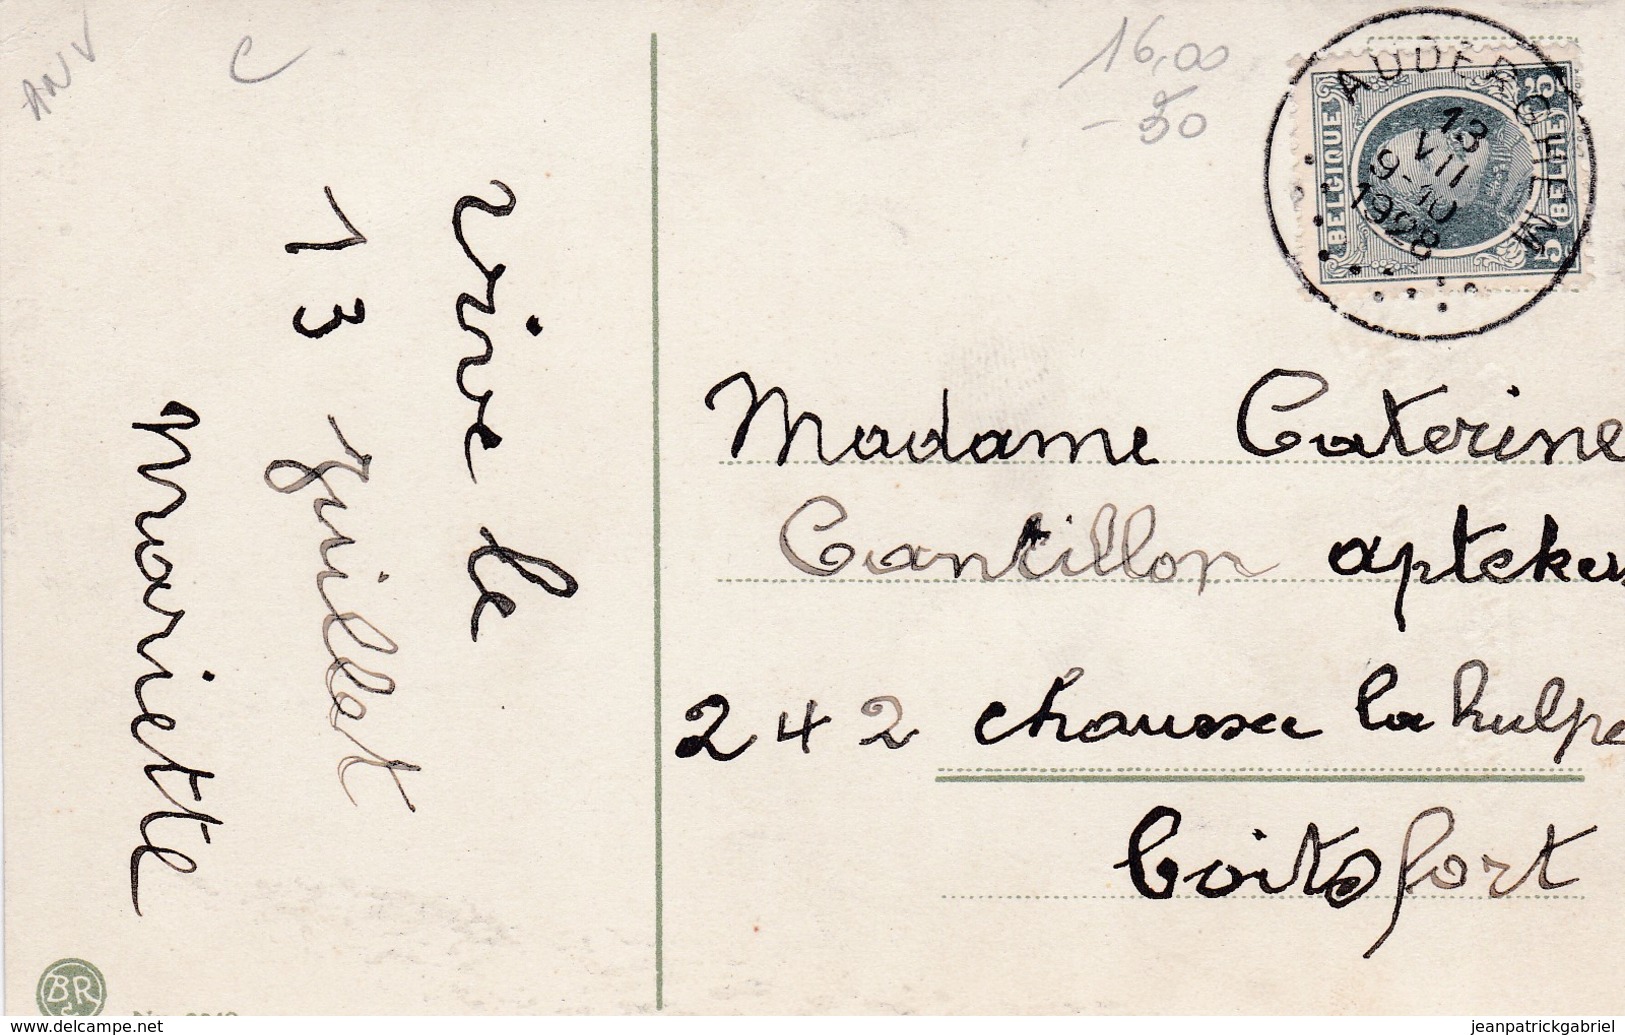 ANV
C
16,00
- 50
AUDERGHEM
13
VII
9-10
1928
BELGIQUE
BELGIË
5 5
vive le
13 juillet
Mariette
Madame Caterine
Cantillon aptekers
242 chaussee la hulpe
boitsfort
BR
www.delcampe.net
jeanpatrickgabriel